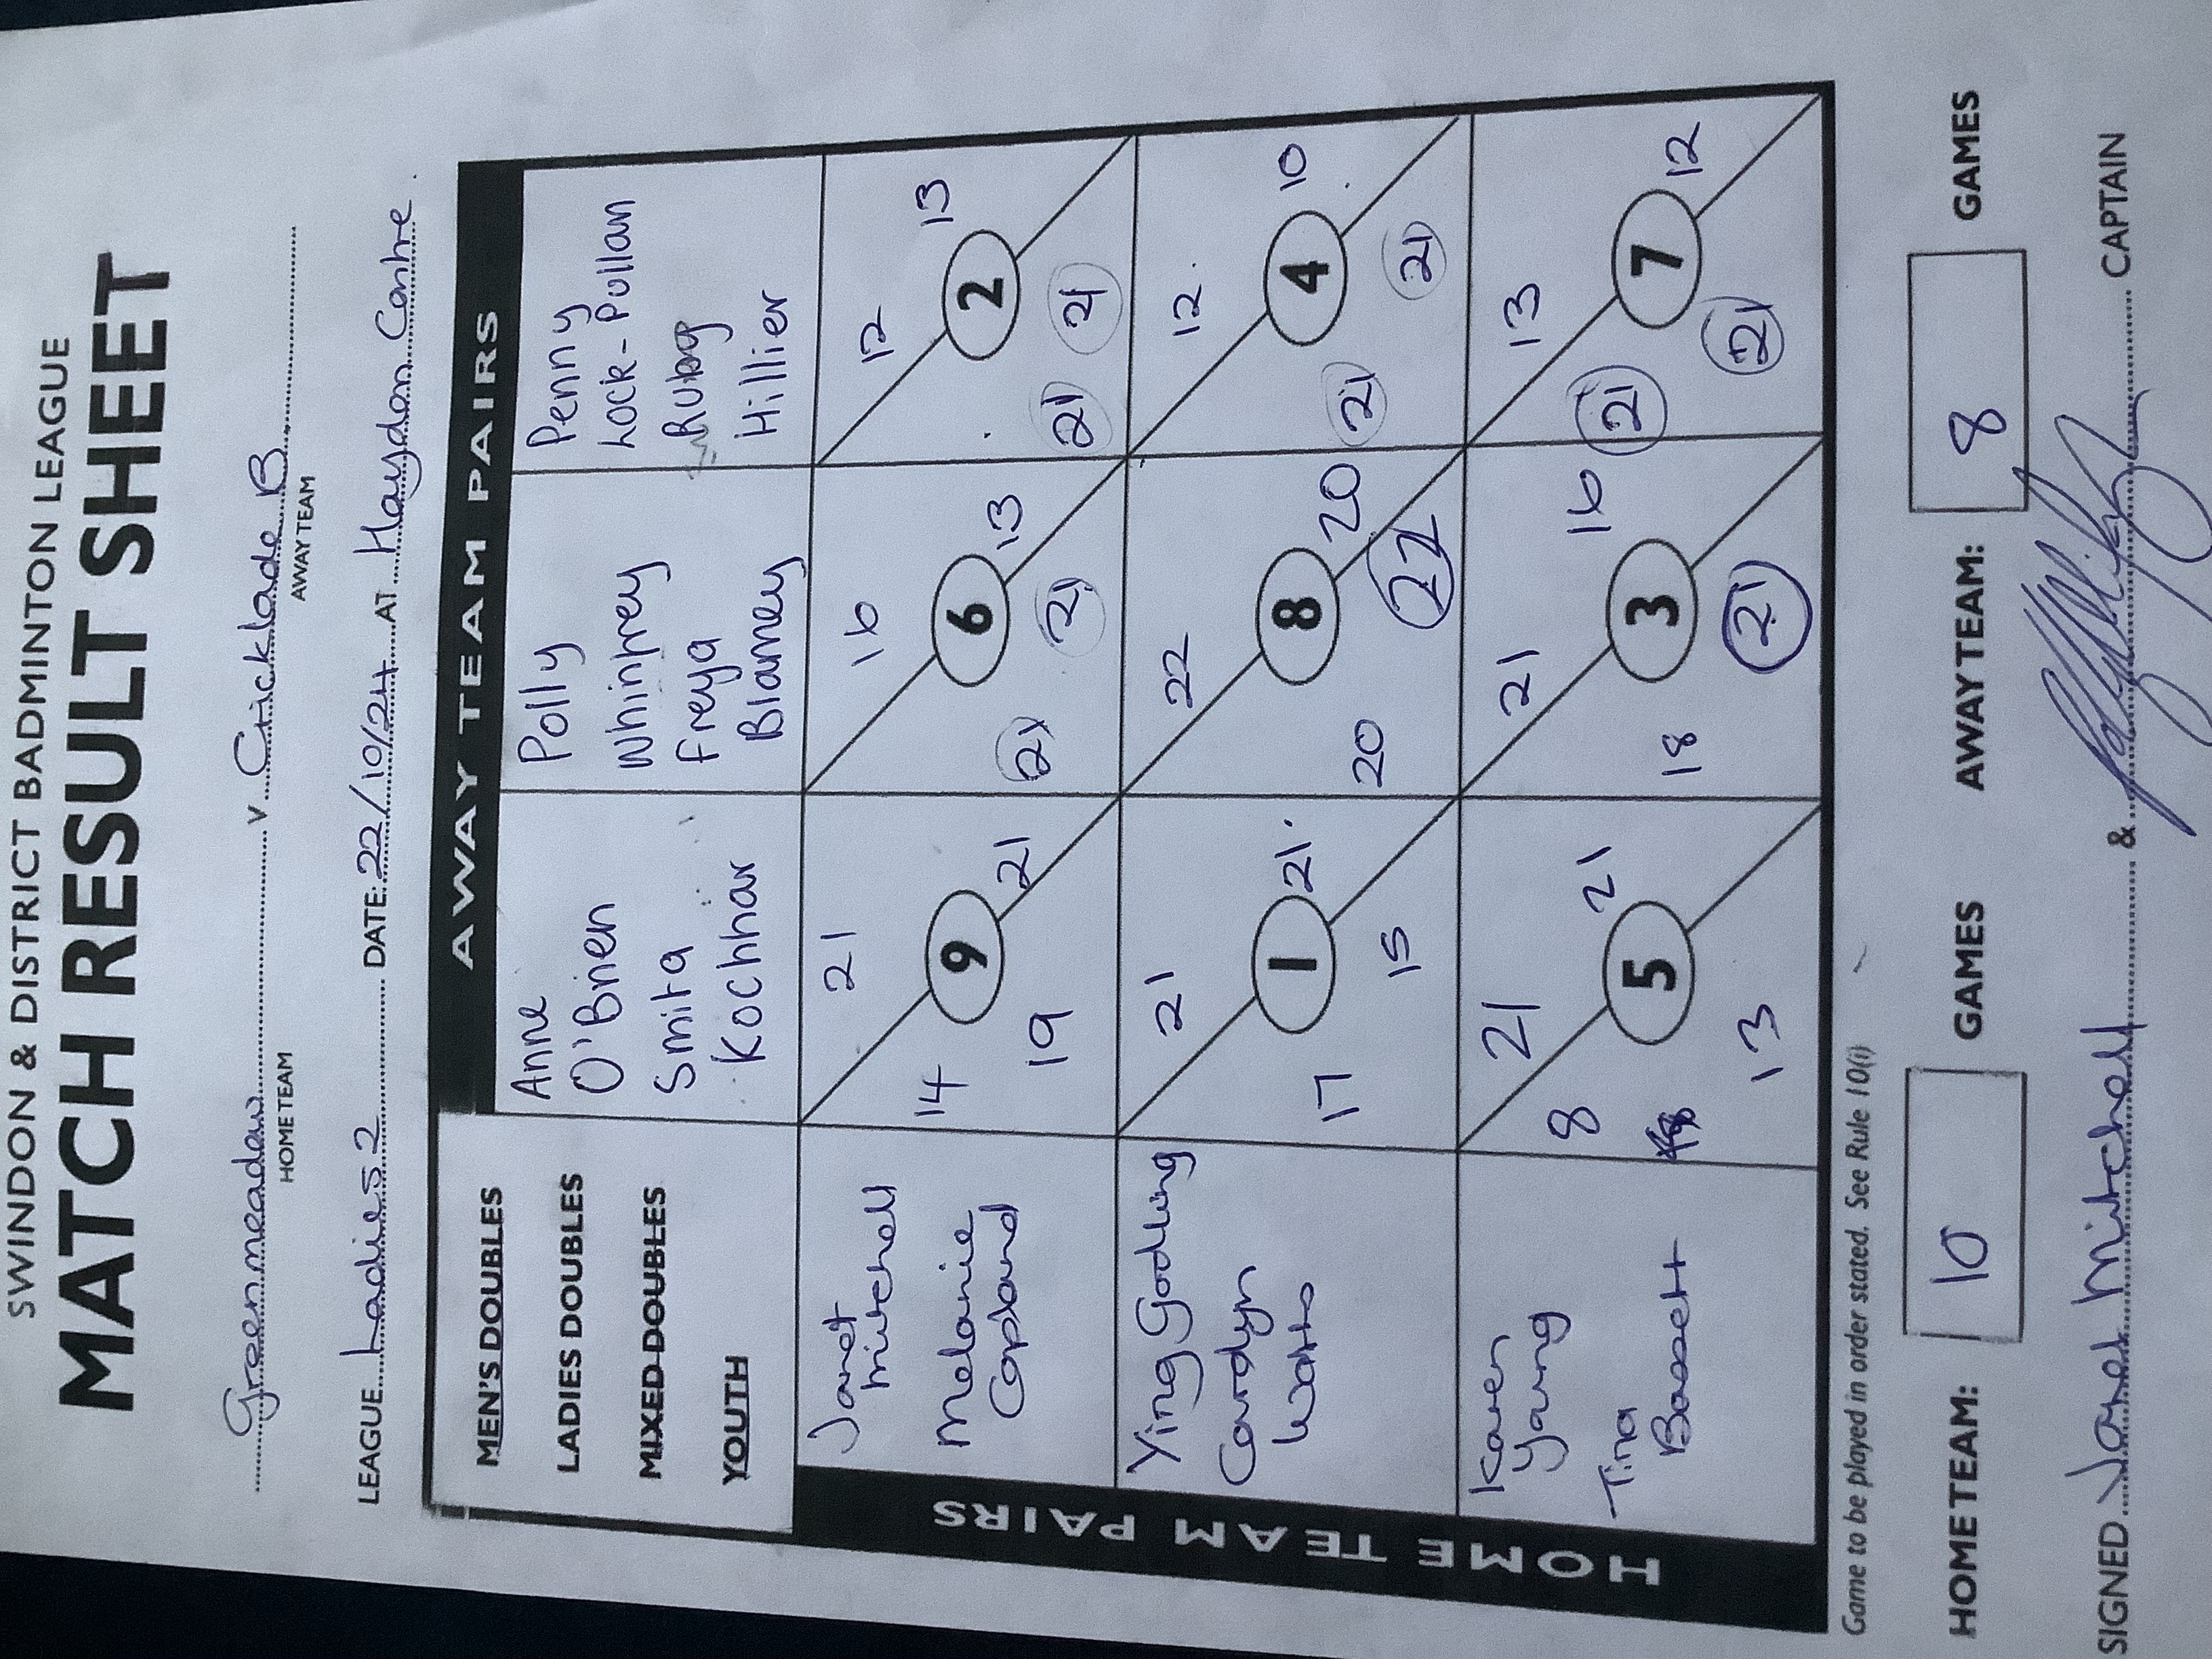 SWINDON & DISTRICT BADMINTON LEAGUE
MATCH RESULT SHEET
Greenmeadow v Cricklade B
HOME TEAM AWAY TEAM
LEAGUE Ladies 2 DATE: 22/10/24 AT Haydon Centre
AWAY TEAM PAIRS
MEN'S DOUBLES
LADIES DOUBLES
MIXED DOUBLES
YOUTH
Anne
O'Brien
Smita
Kochhar
Polly
Whinfrey
Freya
Blamey
Penny
Lock-Pullan
Ruby
Hillier
HOME TEAM PAIRS
Janet
Mitchell
Melanie
Copland
21
14 9 21
19
16
6 13
21 21
12
2 13
21 21
Ying Gooding
Carolyn
Watts
21
1 21
17 15
22
8 20
20 22
12
4 10
21 21
Karen
Young
Tina
Bassett
21
8 5 21
13
21
3 16
18 21
13
21 7 12
21
Game to be played in order stated. See Rule 10(i)
HOME TEAM: 10 GAMES AWAY TEAM: 8 GAMES
SIGNED Janet Mitchell & CAPTAIN